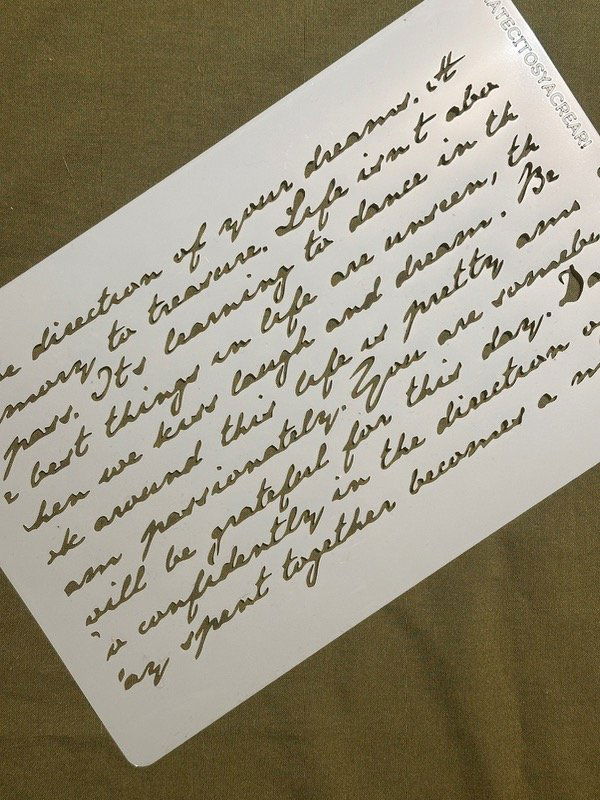 ATECITOSYACREARI
e direction of your dreams. A
mory to treasure. Life isn't abo
pass. Its learning to dance in th
best things in life are unseen, th
hen we kiss laugh and dream. Be
k around this life is pretty ams
am passionately. You are somebe
will be grateful for this day. Da
o confidently in the direction o
ay spent together becomes a m